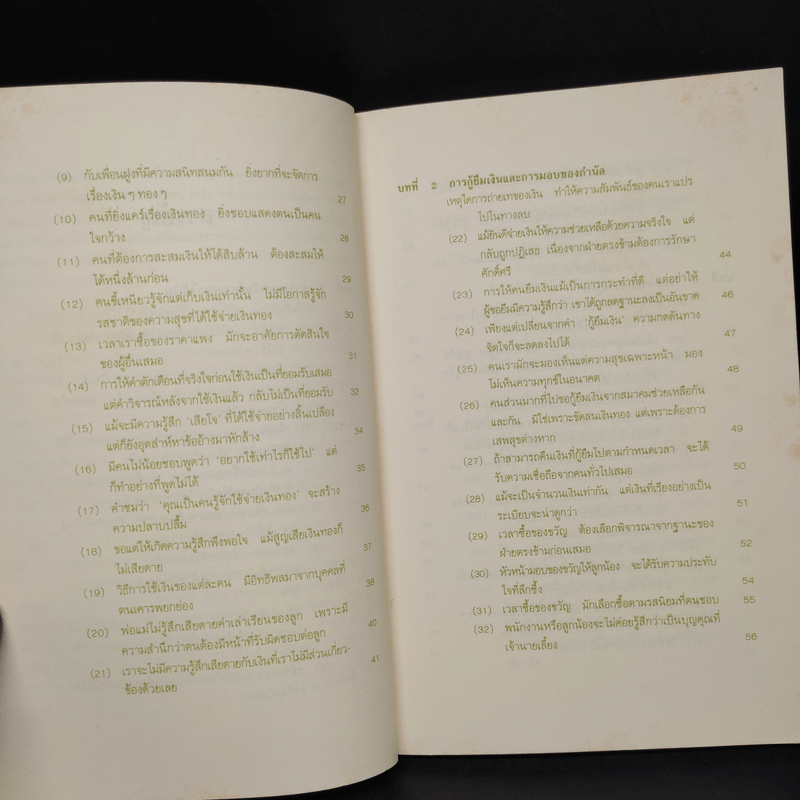 (9) กับเพื่อนฝูงที่มีความสนิทสนมกัน ยิ่งยากที่จะจัดการ
เรื่องเงิน ๆ ทอง ๆ 27
(10) คนที่ยิ่งแคร์เรื่องเงินทอง ยิ่งชอบแสดงตนเป็นคน
ใจกว้าง 28
(11) คนที่ต้องการสะสมเงินให้ได้สิบล้าน ต้องสะสมให้
ได้หนึ่งล้านก่อน 29
(12) คนขี้เหนียวรู้จักแต่เก็บเงินเท่านั้น ไม่มีโอกาสรู้จัก
รสชาติของความสุขที่ได้ใช้จ่ายเงินทอง 30
(13) เวลาเราซื้อของราคาแพง มักจะอาศัยการตัดสินใจ
ของผู้อื่นเสมอ 31
(14) การให้คำตักเตือนที่จริงใจก่อนใช้เงินเป็นที่ยอมรับเสมอ
แต่คำวิจารณ์หลังจากใช้เงินแล้ว กลับไม่เป็นที่ยอมรับ 32
(15) แม้จะมีความรู้สึก 'เสียใจ' ที่ได้ใช้จ่ายอย่างสิ้นเปลือง
แต่ก็ยังอุตส่าห์หาข้ออ้างมาหักล้าง 34
(16) มีคนไม่น้อยชอบพูดว่า 'อยากใช้เท่าไรก็ใช้ไป' แต่
ก็ทำอย่างที่พูดไม่ได้ 35
(17) คำชมว่า 'คุณเป็นคนรู้จักใช้จ่ายเงินทอง' จะสร้าง
ความปลาบปลื้ม 36
(18) ขอแต่ให้เกิดความรู้สึกพึงพอใจ แม้สูญเสียเงินทองก็
ไม่เสียดาย 37
(19) วิธีการใช้เงินของแต่ละคน มีอิทธิพลมาจากบุคคลที่
ตนเคารพยกย่อง 38
(20) พ่อแม่ไม่รู้สึกเสียดายค่าเล่าเรียนของลูก เพราะมี
ความสำนึกว่าตนต้องมีหน้าที่รับผิดชอบต่อลูก 40
(21) เราจะไม่มีความรู้สึกเสียดายกับเงินที่เราไม่มีส่วนเกี่ยว-
ข้องด้วยเลย 41
บทที่ 2 การกู้ยืมเงินและการมอบของกำนัล
เหตุใดการถ่ายเทของเงิน ทำให้ความสัมพันธ์ของคนเราแปร
ไปในทางลบ
(22) แม้ยินดีจ่ายเงินให้ความช่วยเหลือด้วยความจริงใจ แต่
กลับถูกปฏิเสธ เนื่องจากฝ่ายตรงข้ามต้องการรักษา
ศักดิ์ศรี 44
(23) การให้คนยืมเงินแม้เป็นการกระทำที่ดี แต่อย่าให้
ผู้ขอยืมมีความรู้สึกว่า เขาได้ถูกลดฐานะลงเป็นอันขาด 46
(24) เพียงแต่เปลี่ยนจากคำ 'กู้ยืมเงิน' ความกดดันทาง
จิตใจก็จะลดลงไปได้ 47
(25) คนเรามักจะมองเห็นแต่ความสุขเฉพาะหน้า มอง
ไม่เห็นความทุกข์ในอนาคต 48
(26) คนส่วนมากที่ไปขอกู้ยืมเงินจากสมาคมช่วยเหลือกัน
และกัน มิใช่เพราะขัดสนเงินทอง แต่เพราะต้องการ
เสพสุขต่างหาก 49
(27) ถ้าสามารถคืนเงินที่กู้ยืมไปตามกำหนดเวลา จะได้
รับความเชื่อถือจากคนทั่วไปเสมอ 50
(28) แม้จะเป็นจำนวนเงินเท่ากัน แต่เงินที่เรียงอย่างเป็น
ระเบียบจะน่าดูกว่า 51
(29) เวลาซื้อของขวัญ ต้องเลือกพิจารณาจากฐานะของ
ฝ่ายตรงข้ามก่อนเสมอ 52
(30) หัวหน้ามอบของขวัญให้ลูกน้อง จะได้รับความประทับ
ใจที่ลึกซึ้ง 54
(31) เวลาซื้อของขวัญ มักเลือกซื้อตามรสนิยมที่ตนชอบ 55
(32) พนักงานหรือลูกน้องจะไม่ค่อยรู้สึกว่าเป็นบุญคุณที่
เจ้านายเลี้ยง 56